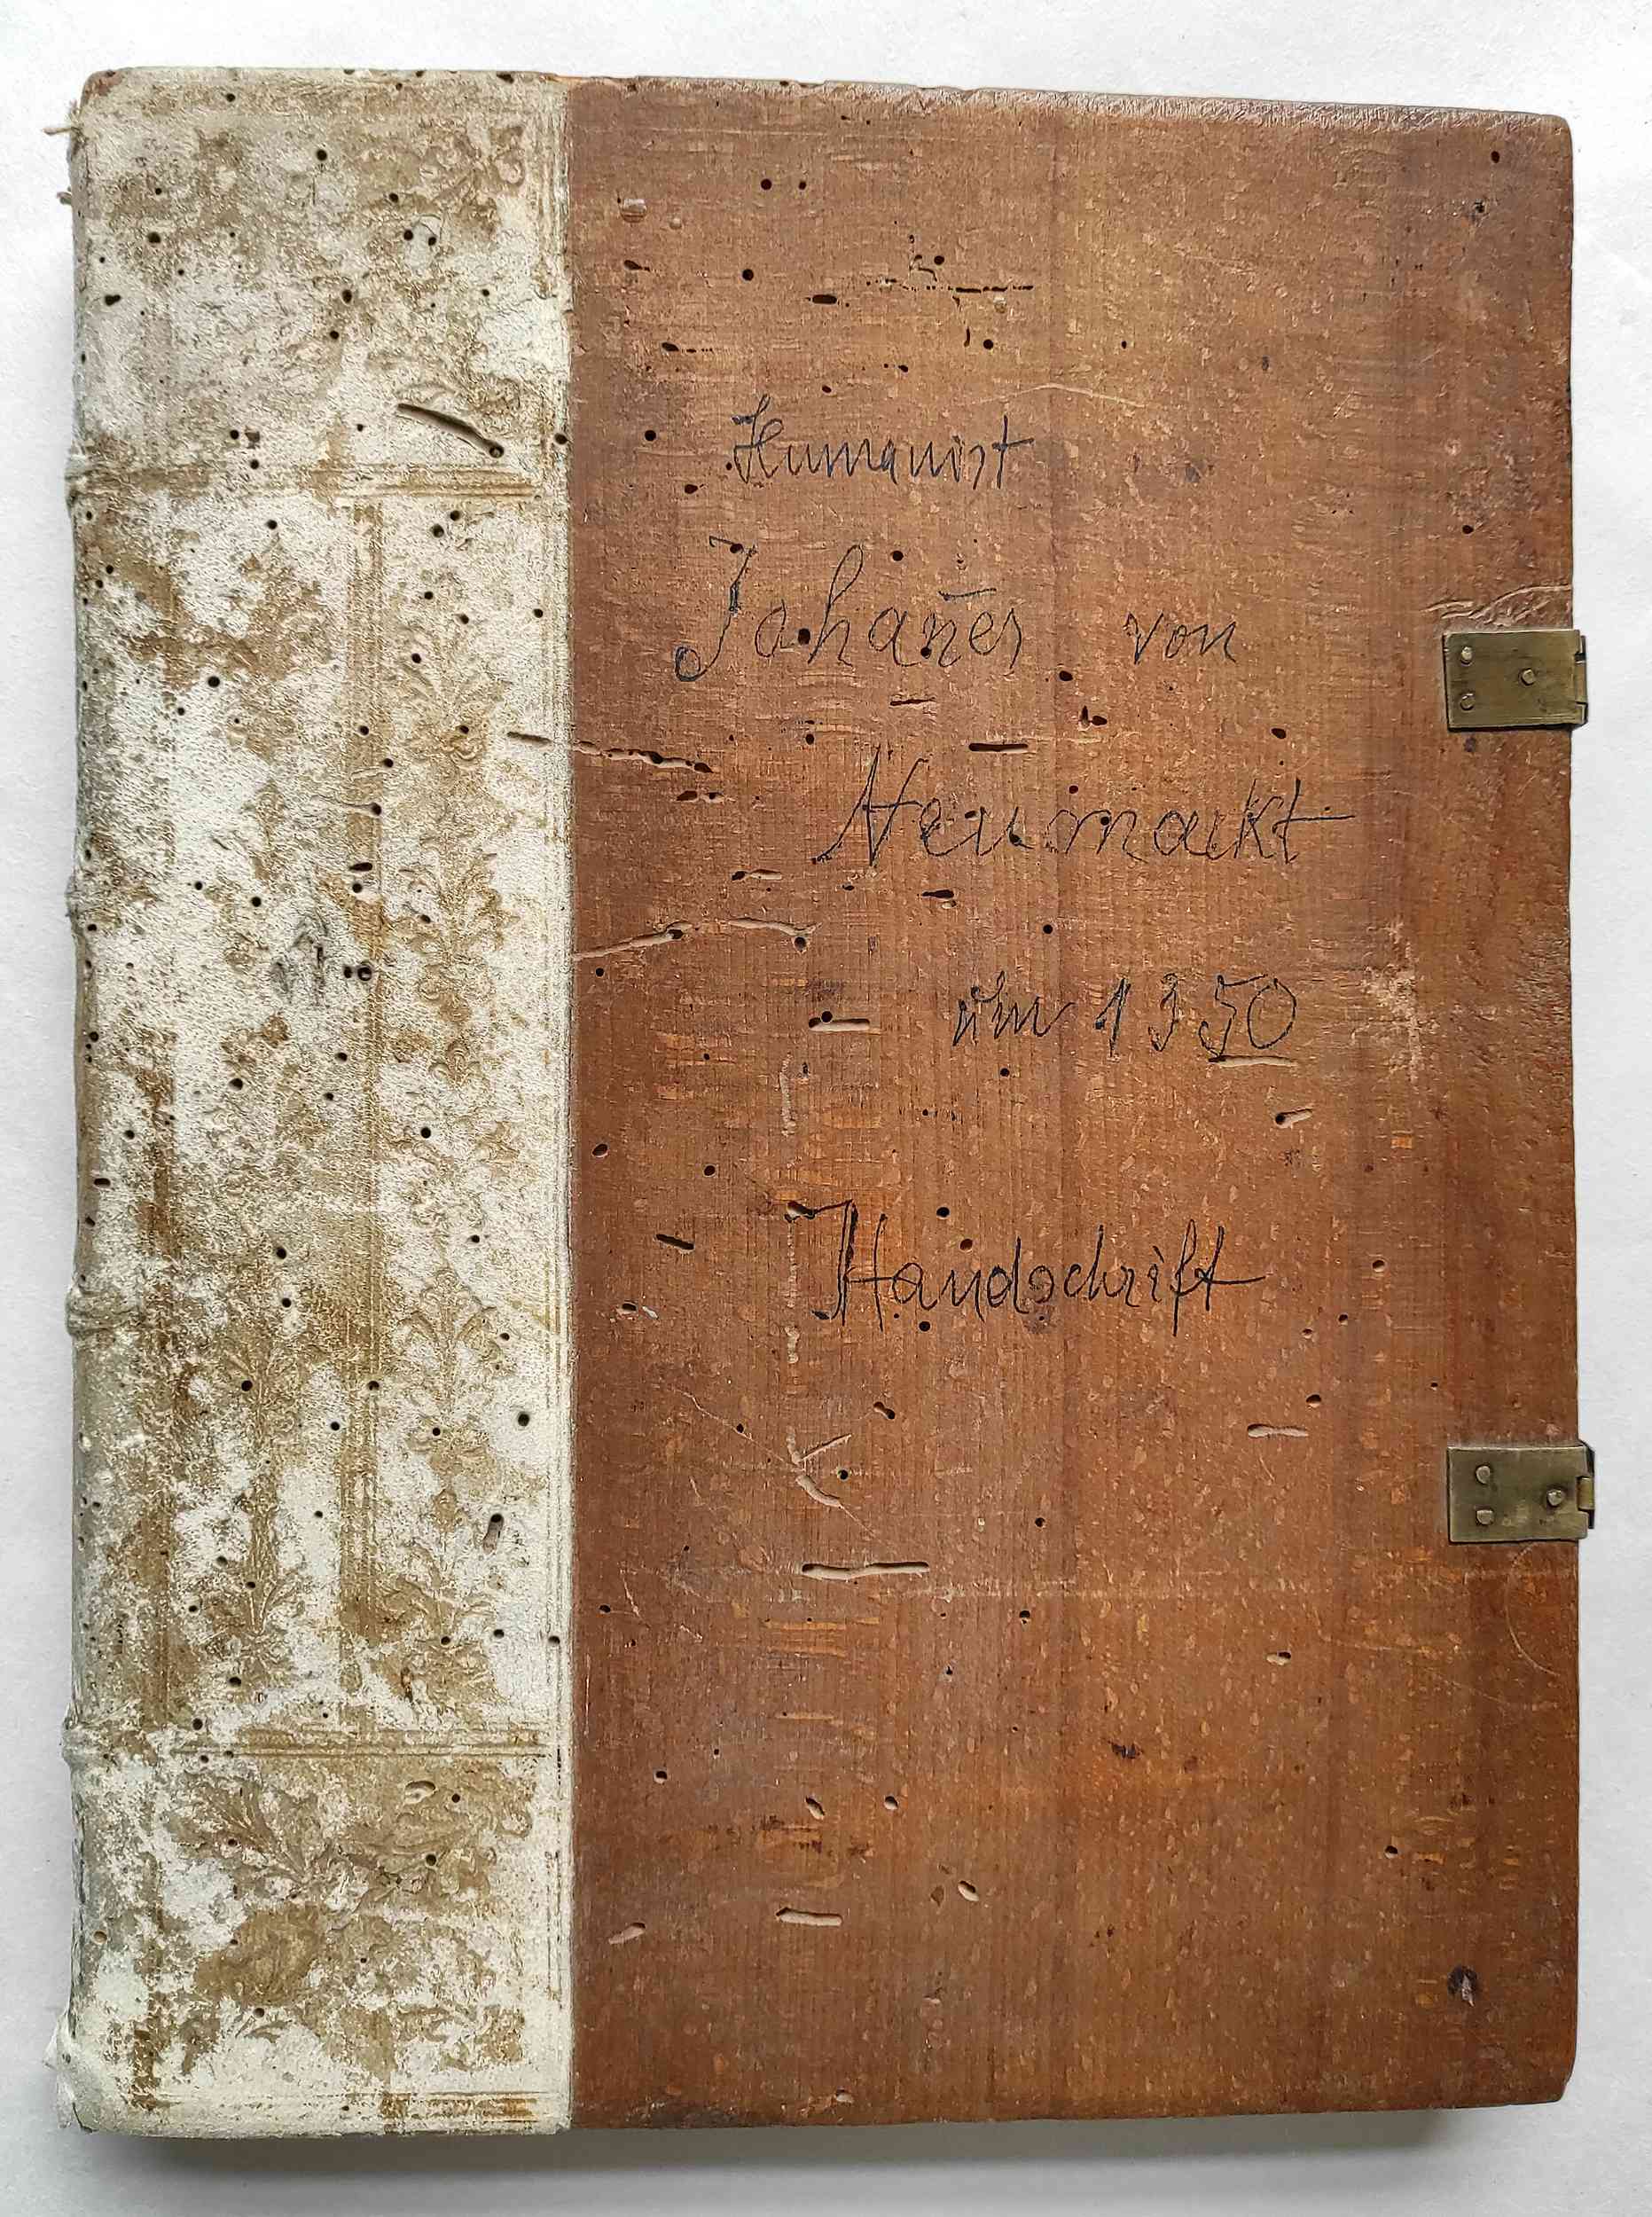 Humanist
Johan̄es von
Neumarkt
um 1350
Handschrift